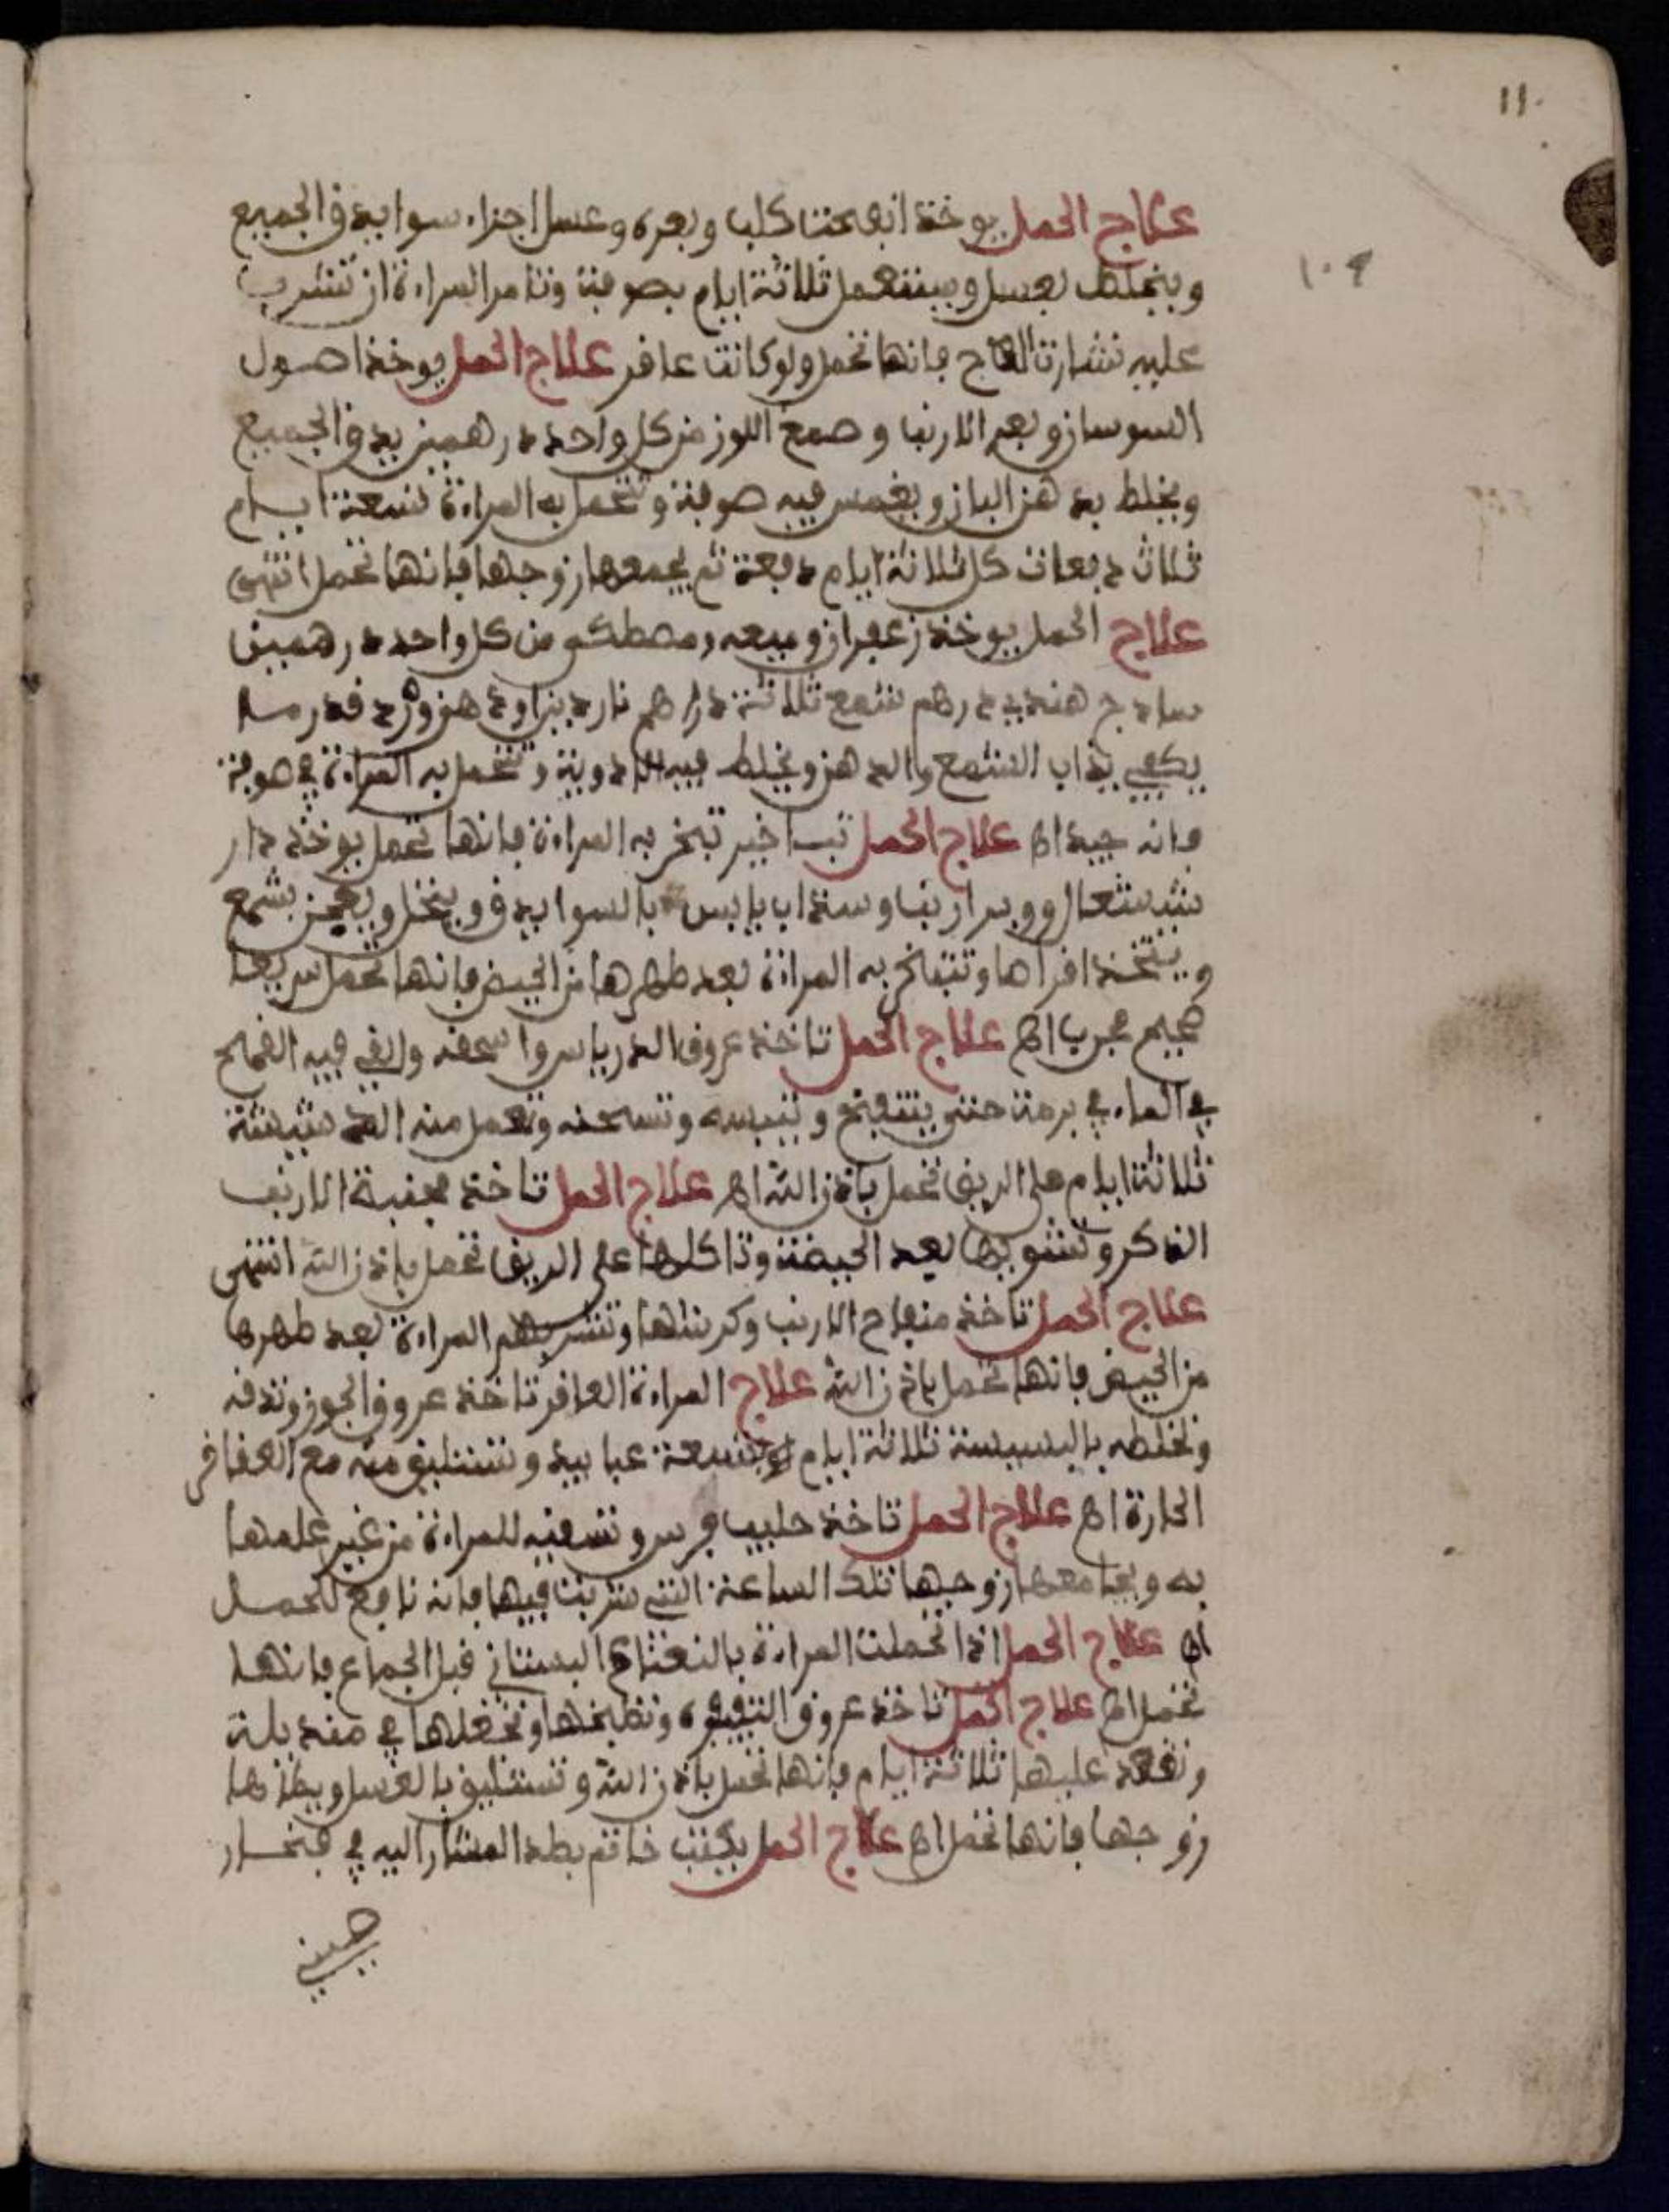 11.
علاج الحمل يوخذ انفحت كلب وبعره وعسل اجزاء سوا يدق الجميع
ويخلط بعسل ويستعمل ثلاثة ايام بصوفة وتامر المراءة ان تشرب
1.9
عليه نشارت العاج فانها تحمل ولو كانت عافر علاج الحمل يوخذ اصول
السوسان وبعر الارنب وصمغ اللوز من كل واحد درهمين يدق الجميع
ويخلط بدهن البان ويغمس فيه صوفة وتتحمل به المراءة تسعة ايام
ثلاث دفعات كل ثلاثة ايام دفعة ثم يجمعها زوجها فانها تحمل انتهى
علاج الحمل يوخذ زعفران وميعه ومصطكى من كل واحد درهمين
سادج هندي درهم شمع ثلاثة دراهم ناردين اودهن ورد قدر ما
يكفي يذاب الشمع والدهن ويخلط فيه الادوية وتتحمل به المراءة في صوفة
فانه جيد اه علاج الحمل تبخر به المراءة فانها تحمل يوخذ دار
شيشعال ووبر ارنب وسذاب يابس بالسوا يدق وينخل ويعجن بشمع
ويتخذ اقراصا وتتبخر به المراءة بعد طهرها من الحيض فانها تحمل سريعا
صحيح مجرب اه علاج الحمل تاخذ عروق الدرياس واسحقه والقي فيه القمح
في الماء في برمة حتى يتنفخ وتيبسه وتسحقه وتعمل منه الدشيشة
ثلاثة ايام على الريق تحمل باذن الله اه علاج الحمل تاخذ الارنب
الذكر وتشويها بعد الحيضة وتاكلها على الريق تحمل باذن الله انتهى
علاج الحمل تاخذ الارنب وكرشها وتشربهم المراءة بعد طهرها
من الحيض فانها تحمل باذن الله علاج المراءة العافر تاخذ عروق الجوز وتدقه
وتخلطه بالبسيسة ثلاثة ايام وتستليق منه مع العقاقر
الحارة اه علاج الحمل تاخذ حليب فرس وتسقيه للمراءة من غير علمها
به ويجامعها زوجها تلك الساعة التي شربت فيها فانه نافع للحمل
اه علاج الحمل اذا تحملت المراءة بالنعناع البستاني قبل الجماع فانها
تحمل اه علاج الحمل تاخذ عروق وتطبخها وتجعلها في
وتقعد عليها ثلاثة ايام فانها تحمل باذن الله وتستليق بالعسل ويطاها
زوجها فانها تحمل اه علاج الحمل يكتب خاتم بطد المشار اليه في فنجار
صيني